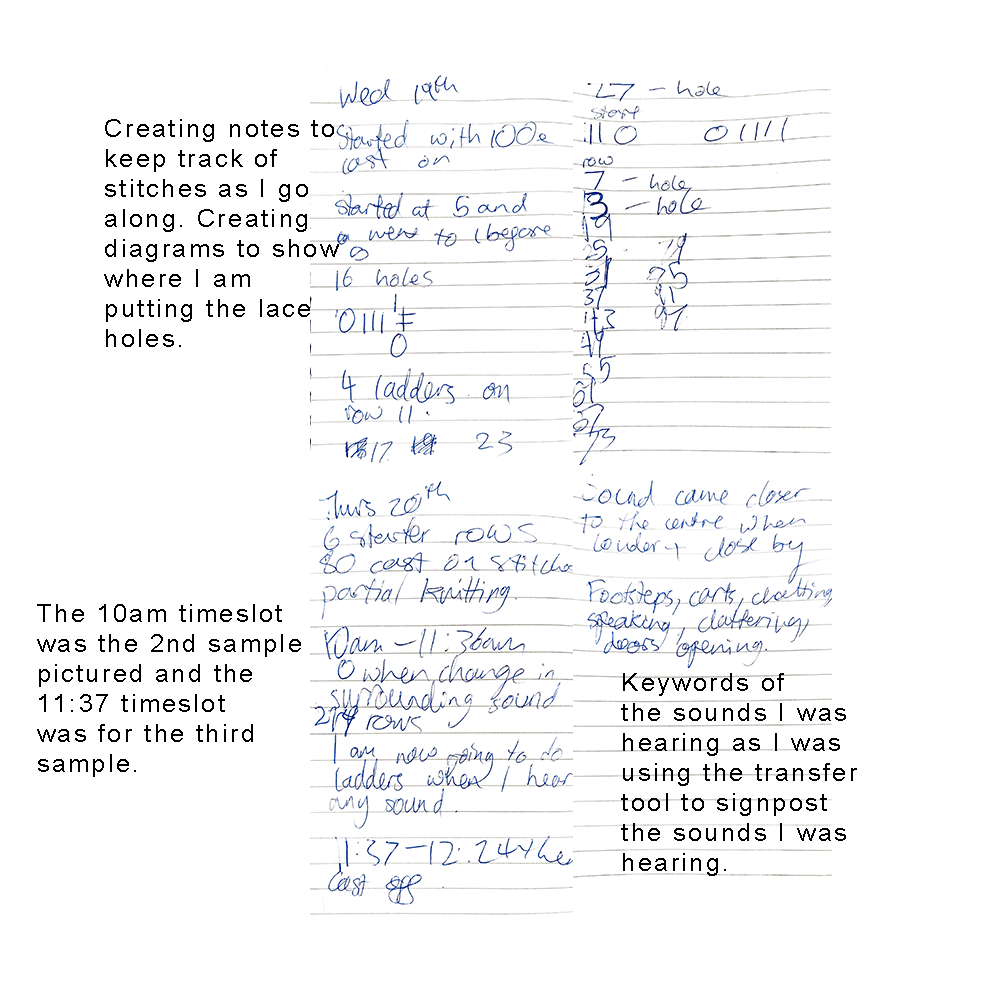 Creating notes to
keep track of
stitches as I go
along. Creating
diagrams to show
where I am
putting the lace
holes.
Wed 19th
Started with 100
cast on
started at 5 and
went to 1 before
16 holes
0111
0
4 ladders on
row 11.
17 23
27 - hole
start
110 01111
row
7 - hole
3 - hole
19
25 19
31 25
37 91
43 97
49
55
61
67
73
The 10am timeslot
was the 2nd sample
pictured and the
11:37 timeslot
was for the third
sample.
Thurs 20th
6 starter rows
80 cast on stitche
partial knitting.
10am - 11:36am
0 when change in
surrounding sound
rows
I am now going to do
ladders when I hear
any sound.
11:37-12:24
Cast off
Sound came closer
to the centre when
louder + close by
Footsteps, carts, chatting,
speaking, clattering,
doors opening.
Keywords of
the sounds I was
hearing as I was
using the transfer
tool to signpost
the sounds I was
hearing.